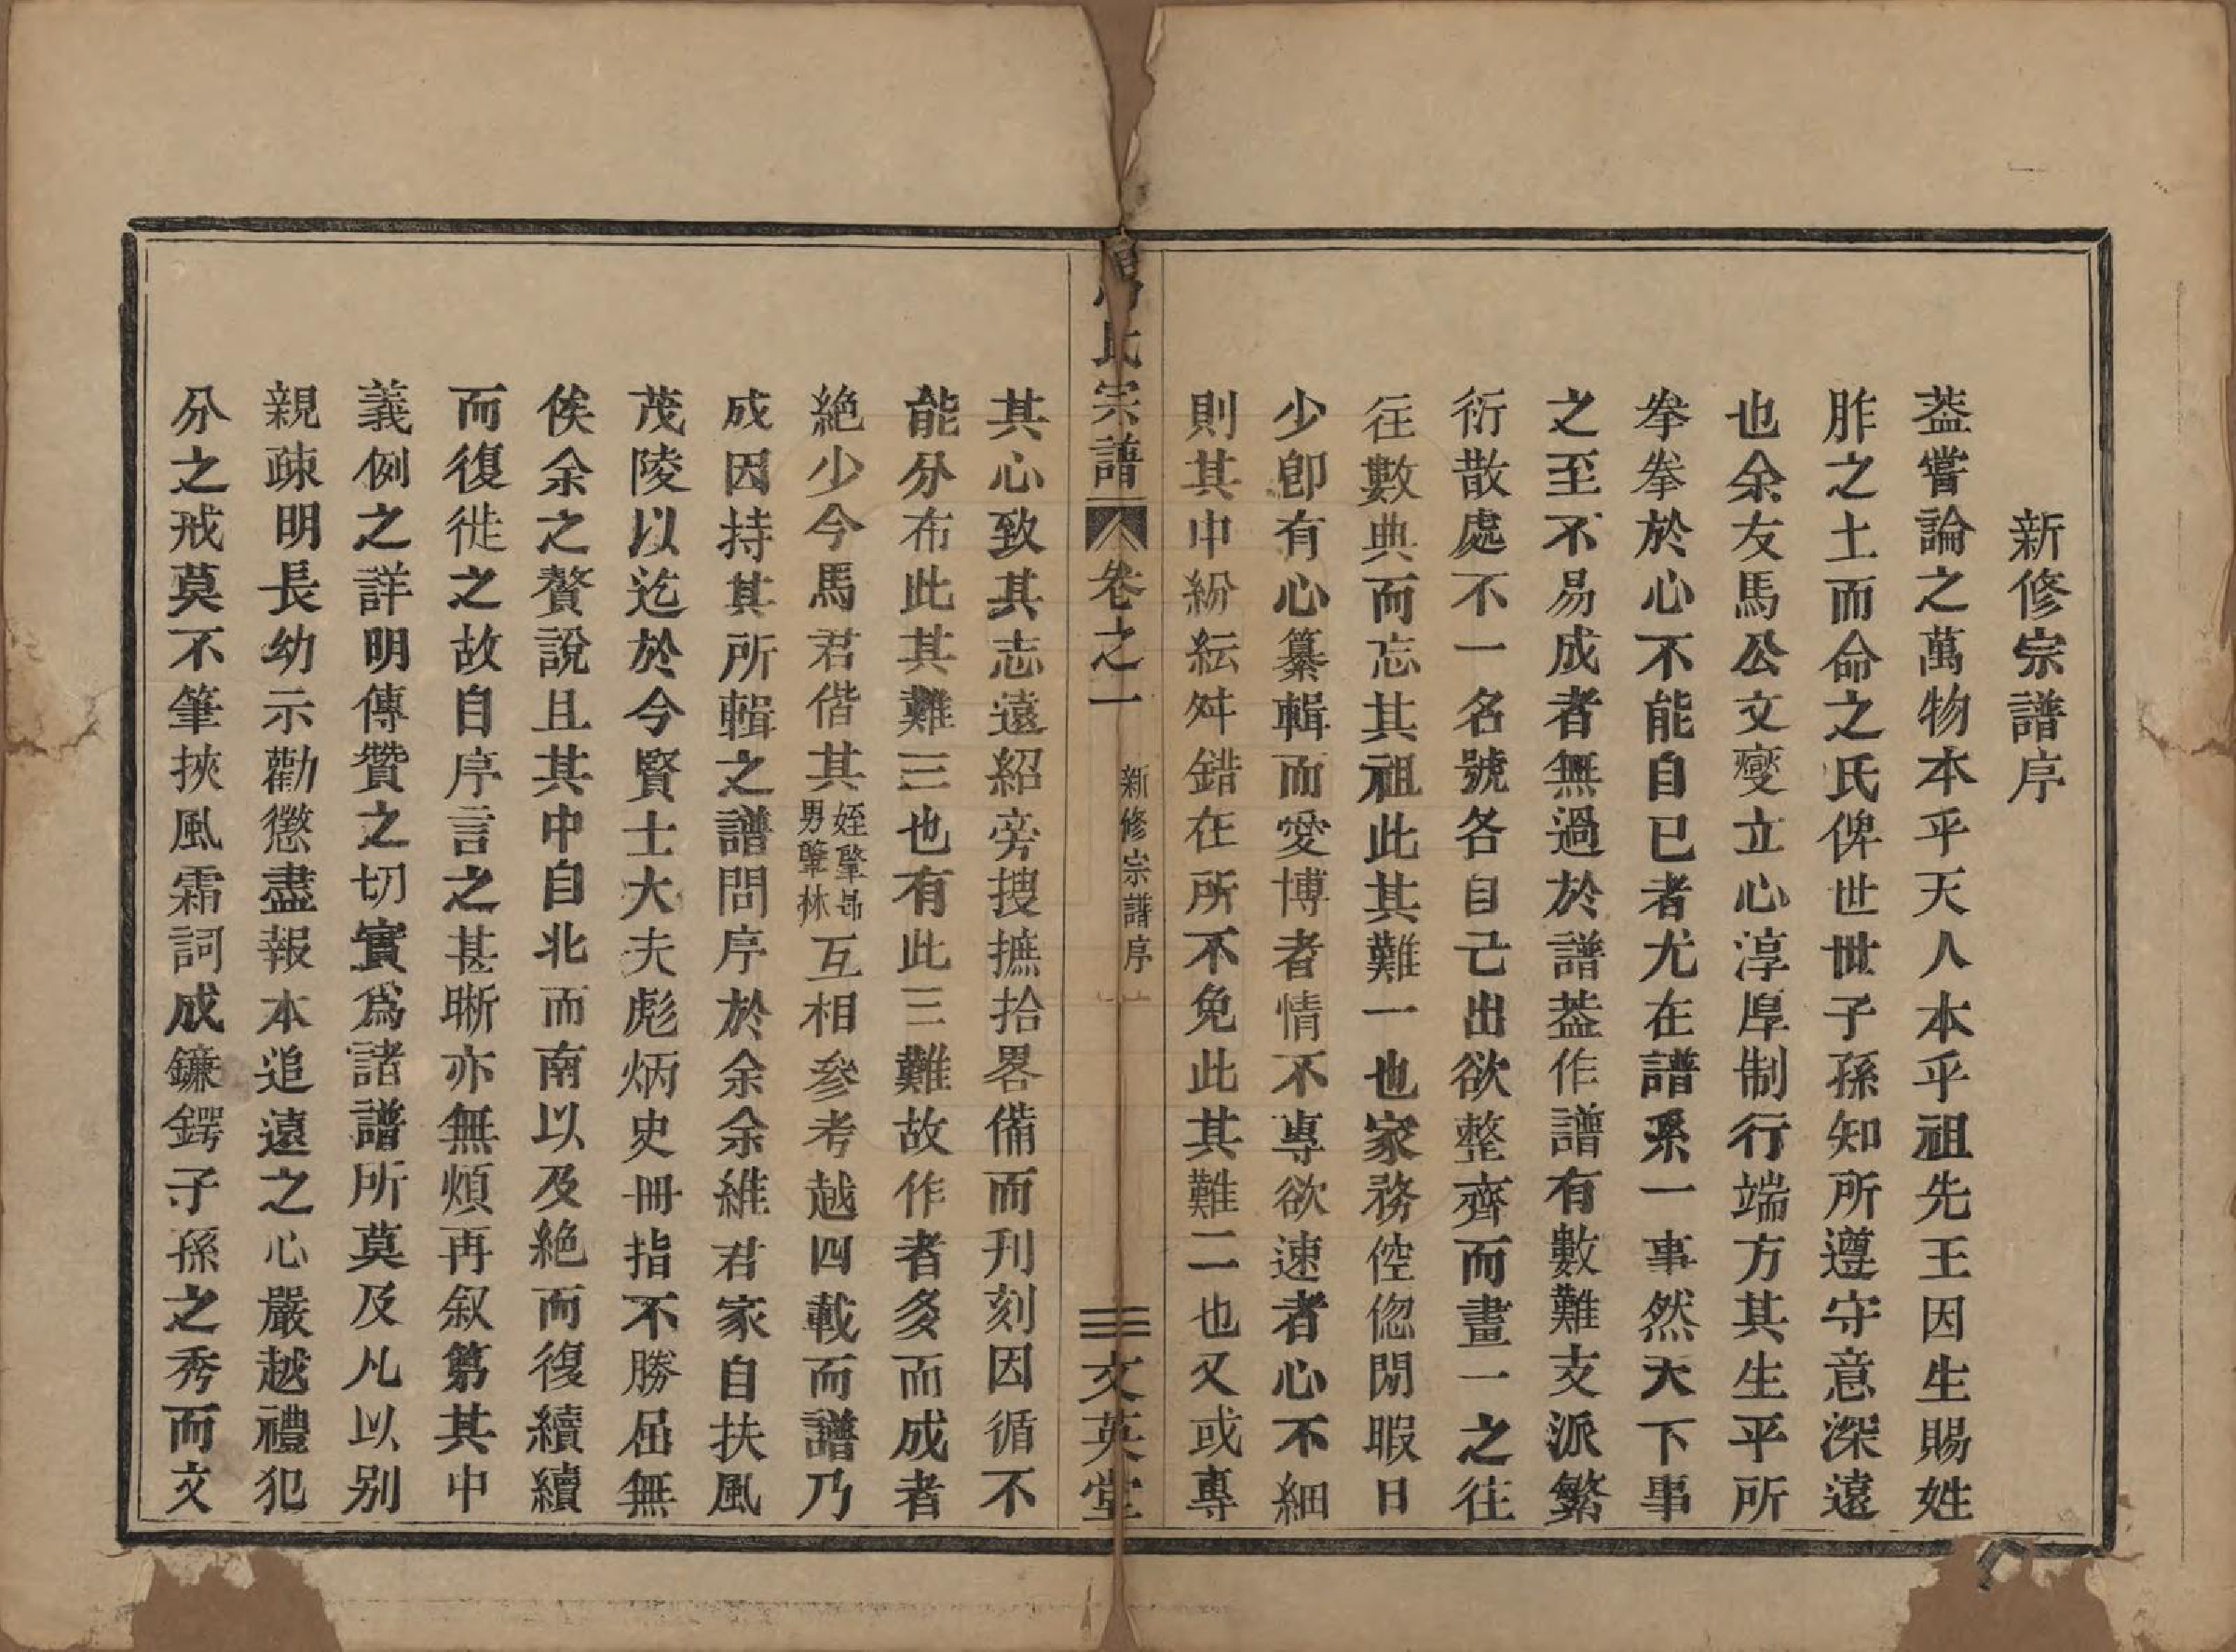 新修宗譜序
蓋嘗論之萬物本乎天人本乎祖先王因生賜姓
胙之土而命之氏俾世世子孫知所遵守意深遠
也余友馬公文燮立心淳厚制行端方其生平所
拳拳於心不能自已者尤在譜系一事然天下事
之至不易成者無過於譜蓋作譜有數難支派繁
衍散處不一名號各自己出欲整齊而畫一之往
往數典而忘其祖此其難一也家務倥偬閒暇日
少卽有心纂輯而愛博者情不專欲速者心不細
則其中紛紜舛錯在所不免此其難二也又或專
氏宗譜
卷之一
新修宗譜序
文英堂
其心致其志遠紹旁搜摭拾畧備而刋刻因循不
能分布此其難三也有此三難故作者多而成者
絶少今馬君偕其姪肇昂男肇林互相參考越四載而譜乃
成因持其所輯之譜問序於余余維君家自扶風
茂陵以迄於今賢士大夫彪炳史冊指不勝屈無
俟余之贅說且其中自北而南以及絶而復續續
而復徙之故自序言之甚晰亦無煩再叙第其中
義例之詳明傳贊之切實爲諸譜所莫及凡以别
親疎明長幼示勸懲盡報本追遠之心嚴越禮犯
分之戒莫不筆挾風霜詞成鐮鍔子孫之秀而文